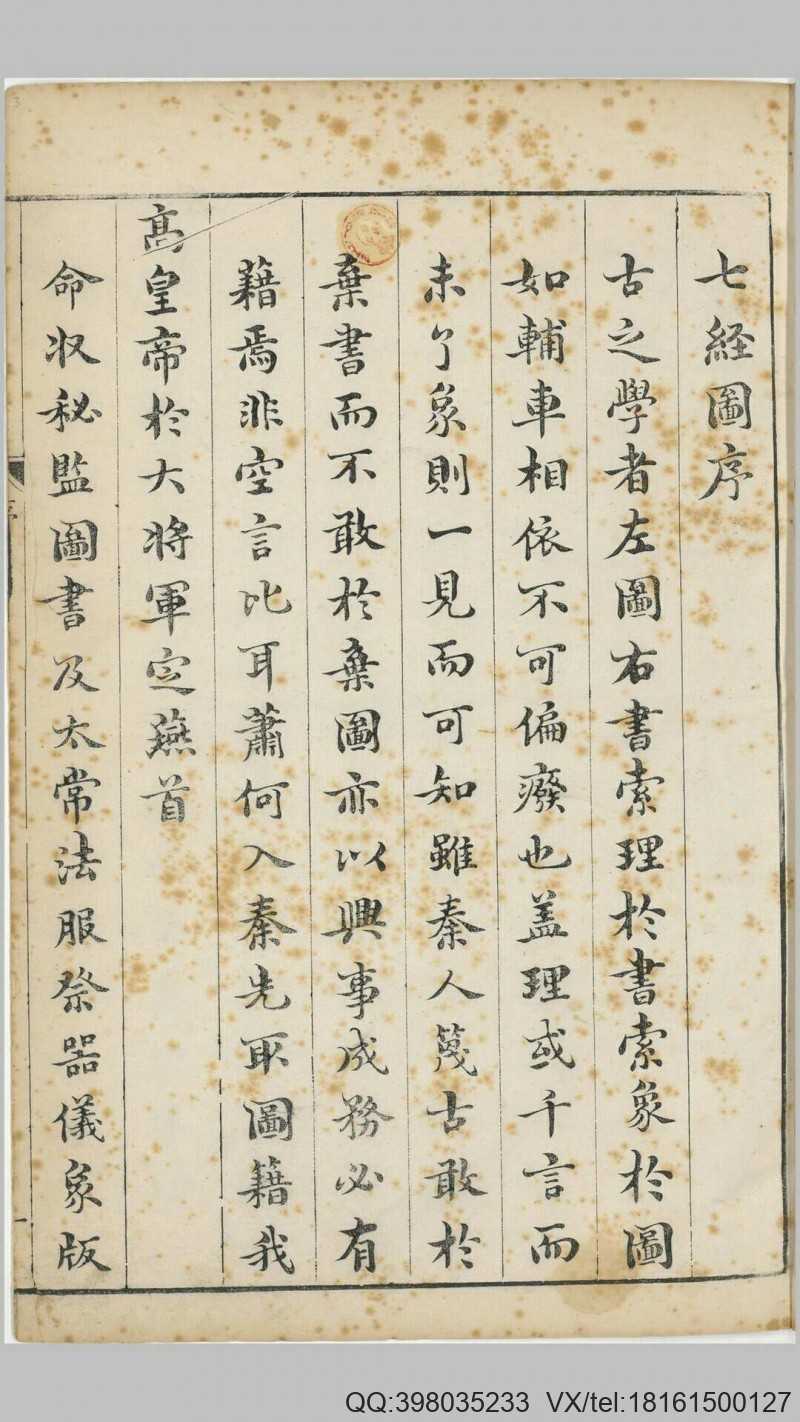 七経圖序
古之學者左圖右書索理於書索象於圖
如輔車相依不可偏癈也盖理或千言而
未了象則一見而可知雖秦人蔑古敢於
棄書而不敢於棄圖亦以興事成務必有
藉焉非空言比耳蕭何入秦先取圖籍我
髙皇帝於大將軍定燕首
命収秘監圖書及太常法服祭器儀象版
QQ:398035233 VX/tel:18161500127